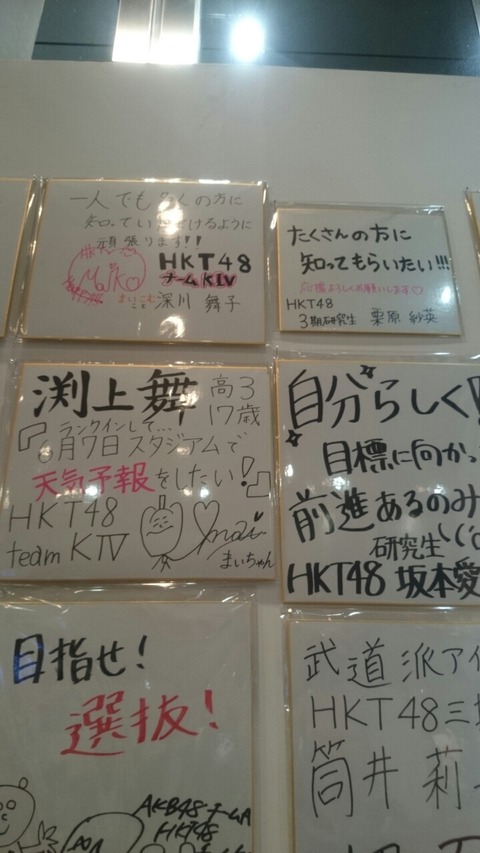 一人でも多くの方に
知っていただけるように
頑張ります!!
Maiko
HKT48
チームKIV
まいこむ こと 深川 舞子
たくさんの方に
知ってもらいたい!!!
応援よろしくお願いします♡
HKT48
3期研究生 栗原 紗英
渕上舞 高3
17歳
ランクインして…
6月7日スタジアムで
天気予報をしたい!
HKT48
team KIV
mai
まいちゃん
自分らしく!
目標に向かっ
前進あるのみ
研究生
HKT48 坂本愛
目指せ!
選抜!
AKB48チームA
HKT48
武道派アイ
HKT48三
筒井 莉